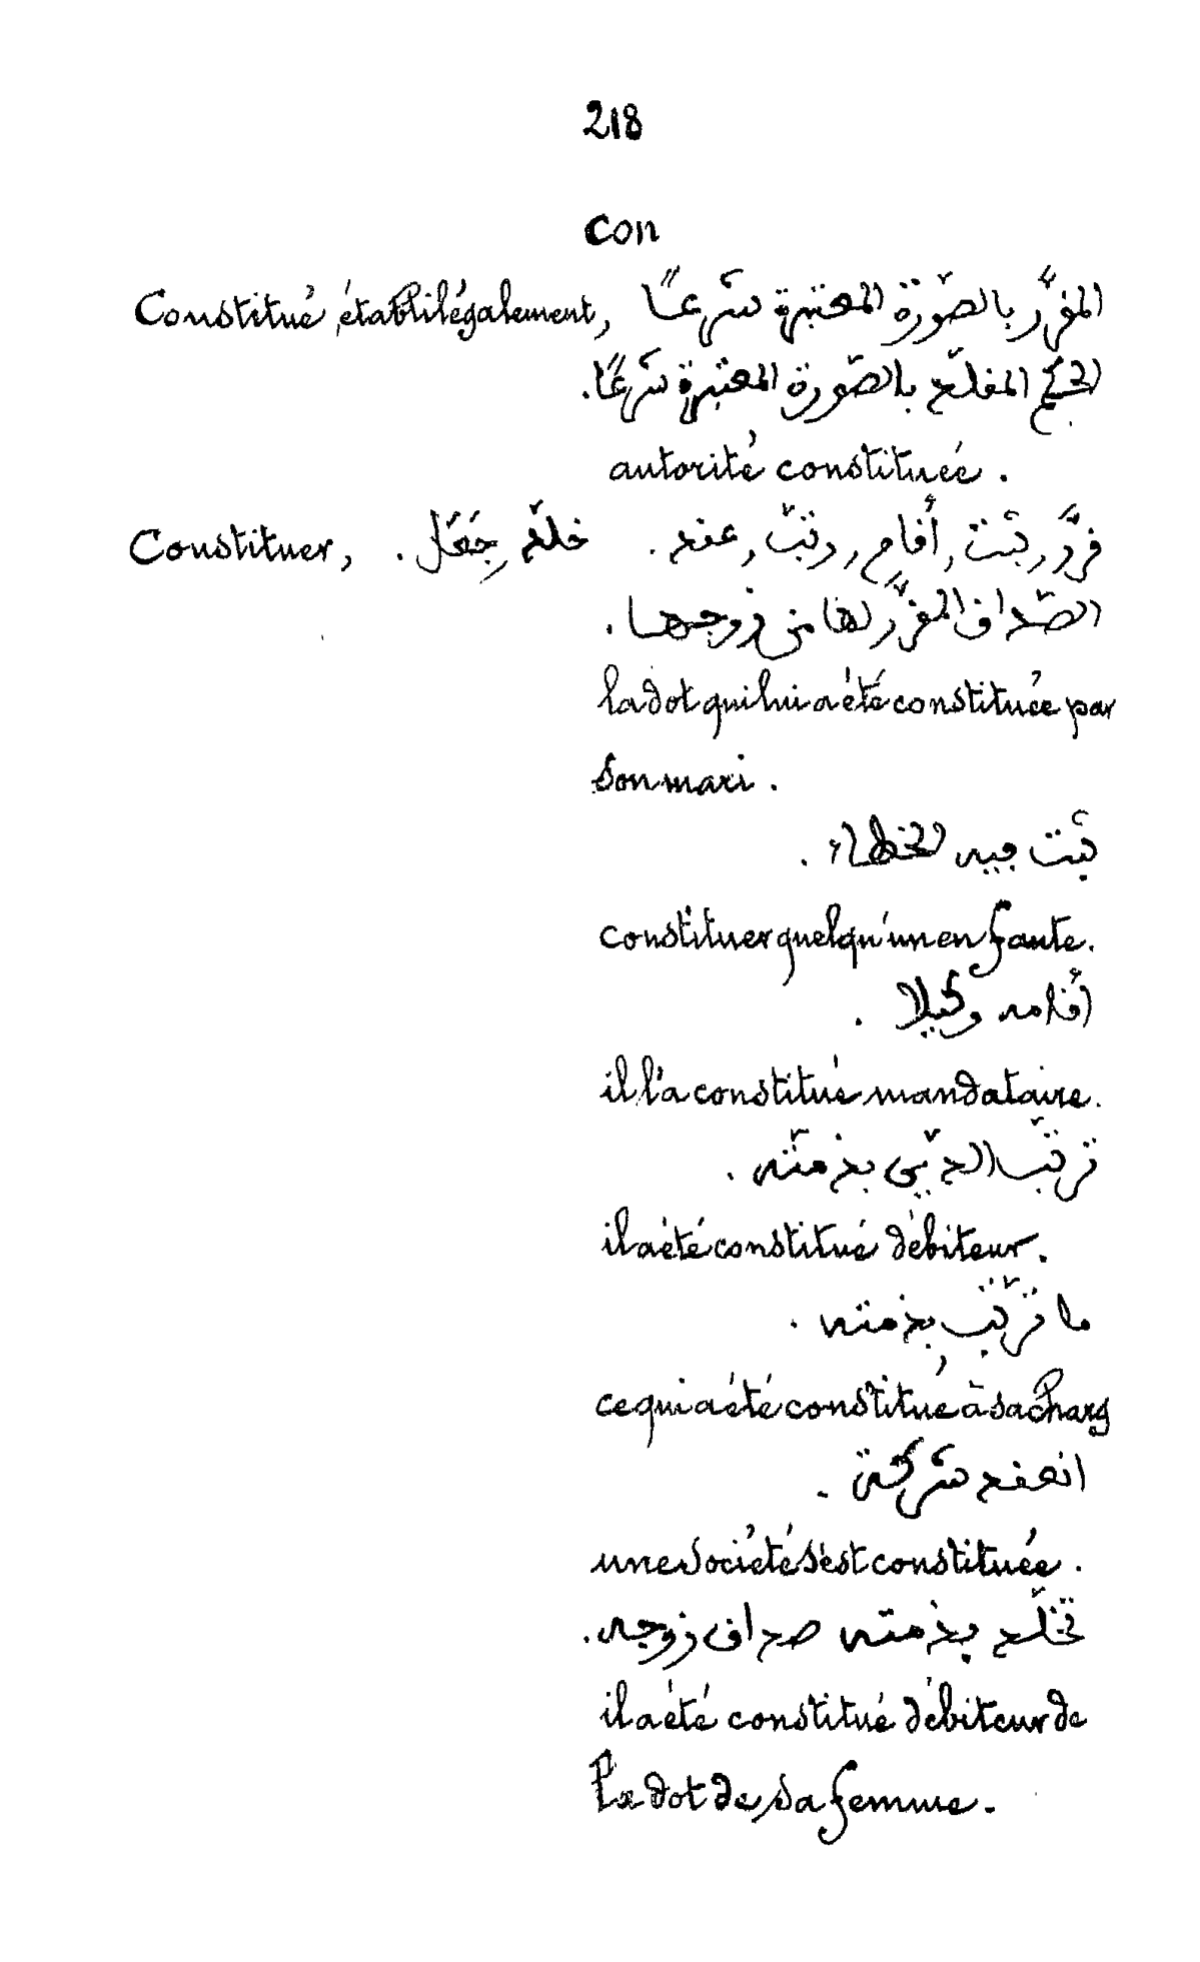 218
Con
Constitué, établi légalement, المقرَّر بالصّورة المعتبرة شرعًا
الحكم المقلّد بالصّورة المعتبرة شرعًا.
autorité constituée.
Constituer, قرَّر, ثبّت, أقام, رتّب, عقد. خلّد, جَعَل.
الصّداق المقرَّر لها من زوجها.
la dot qui lui a été constituée par
son mari.
ثبّت فيه الخطاء.
constituer quelqu'un en faute.
أقامه وكيلا.
il l'a constitué mandataire.
ترتّب الدّين بذمّته.
il a été constitué débiteur.
ما ترتّب بذمته.
ce qui a été constitué à sa charg
انعقد شركة.
une société s'est constituée.
تخلّد بذمته صداق زوجه.
il a été constitué débiteur de
la dot de sa femme.